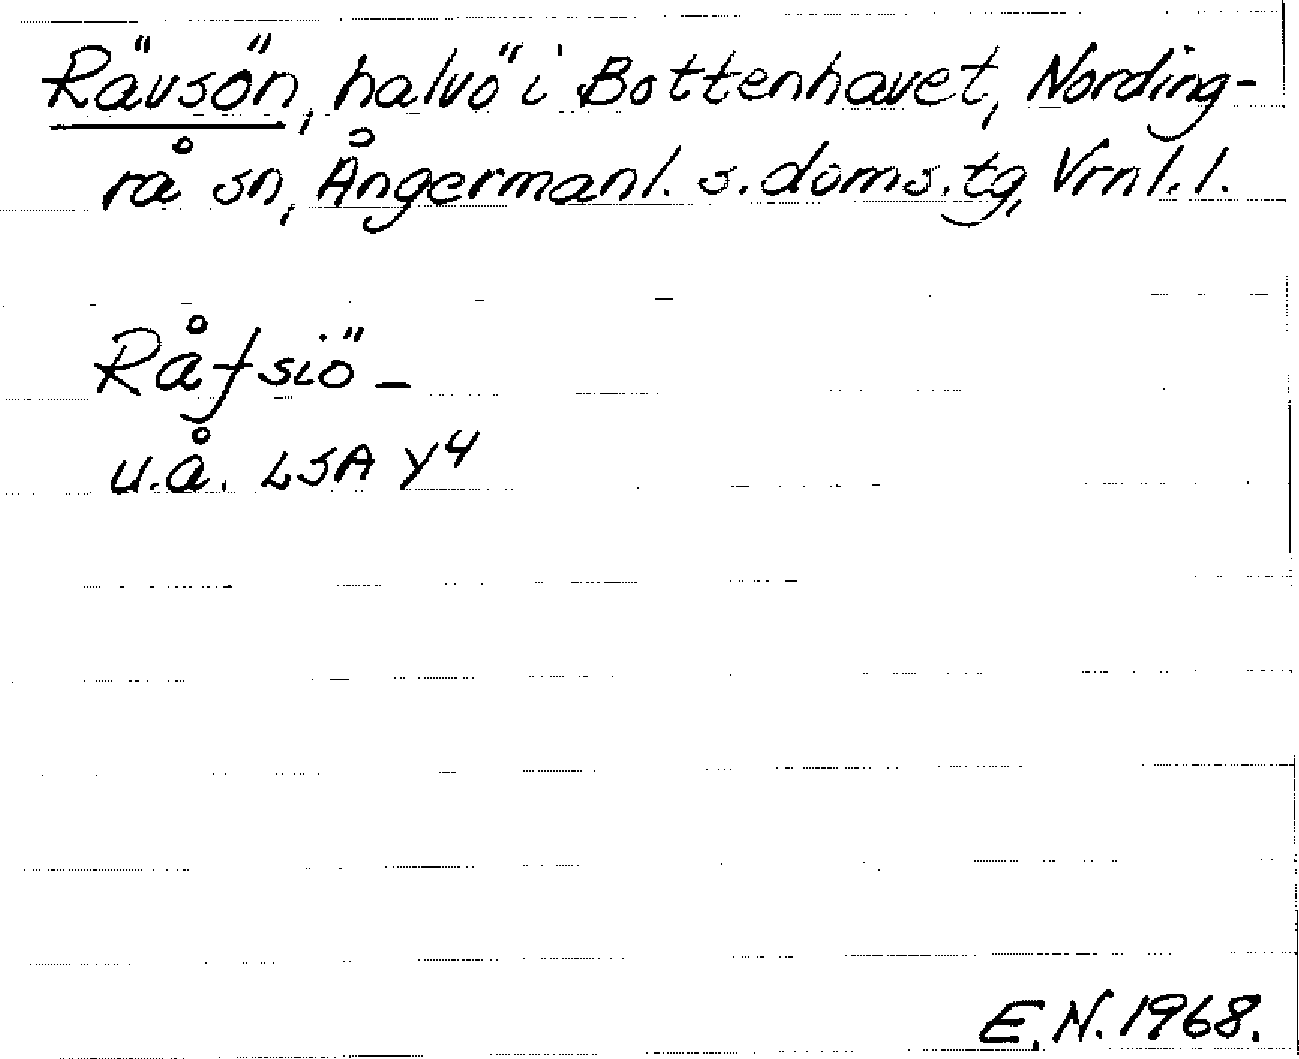 Rävsön, halvö i Bottenhavet, Nording-
rå sn, Ångermanl. s. doms. tg, Vrnl. l.
Råfsiö –
u.å. LSA Y4
E.N. 1968.